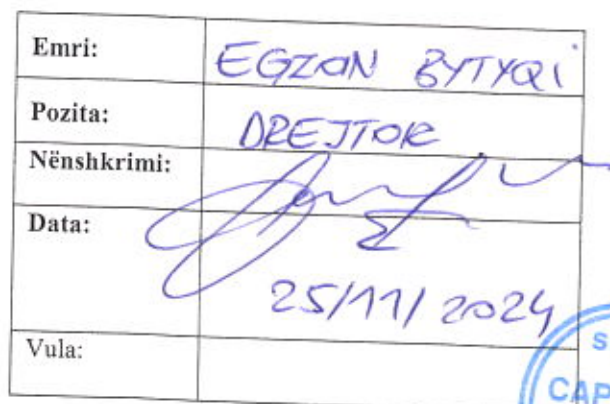 Emri: EGZON BYTYQI
Pozita: DREJTOR
Nënshkrimi:
Data: 25/11/2024
Vula:
S
CAP